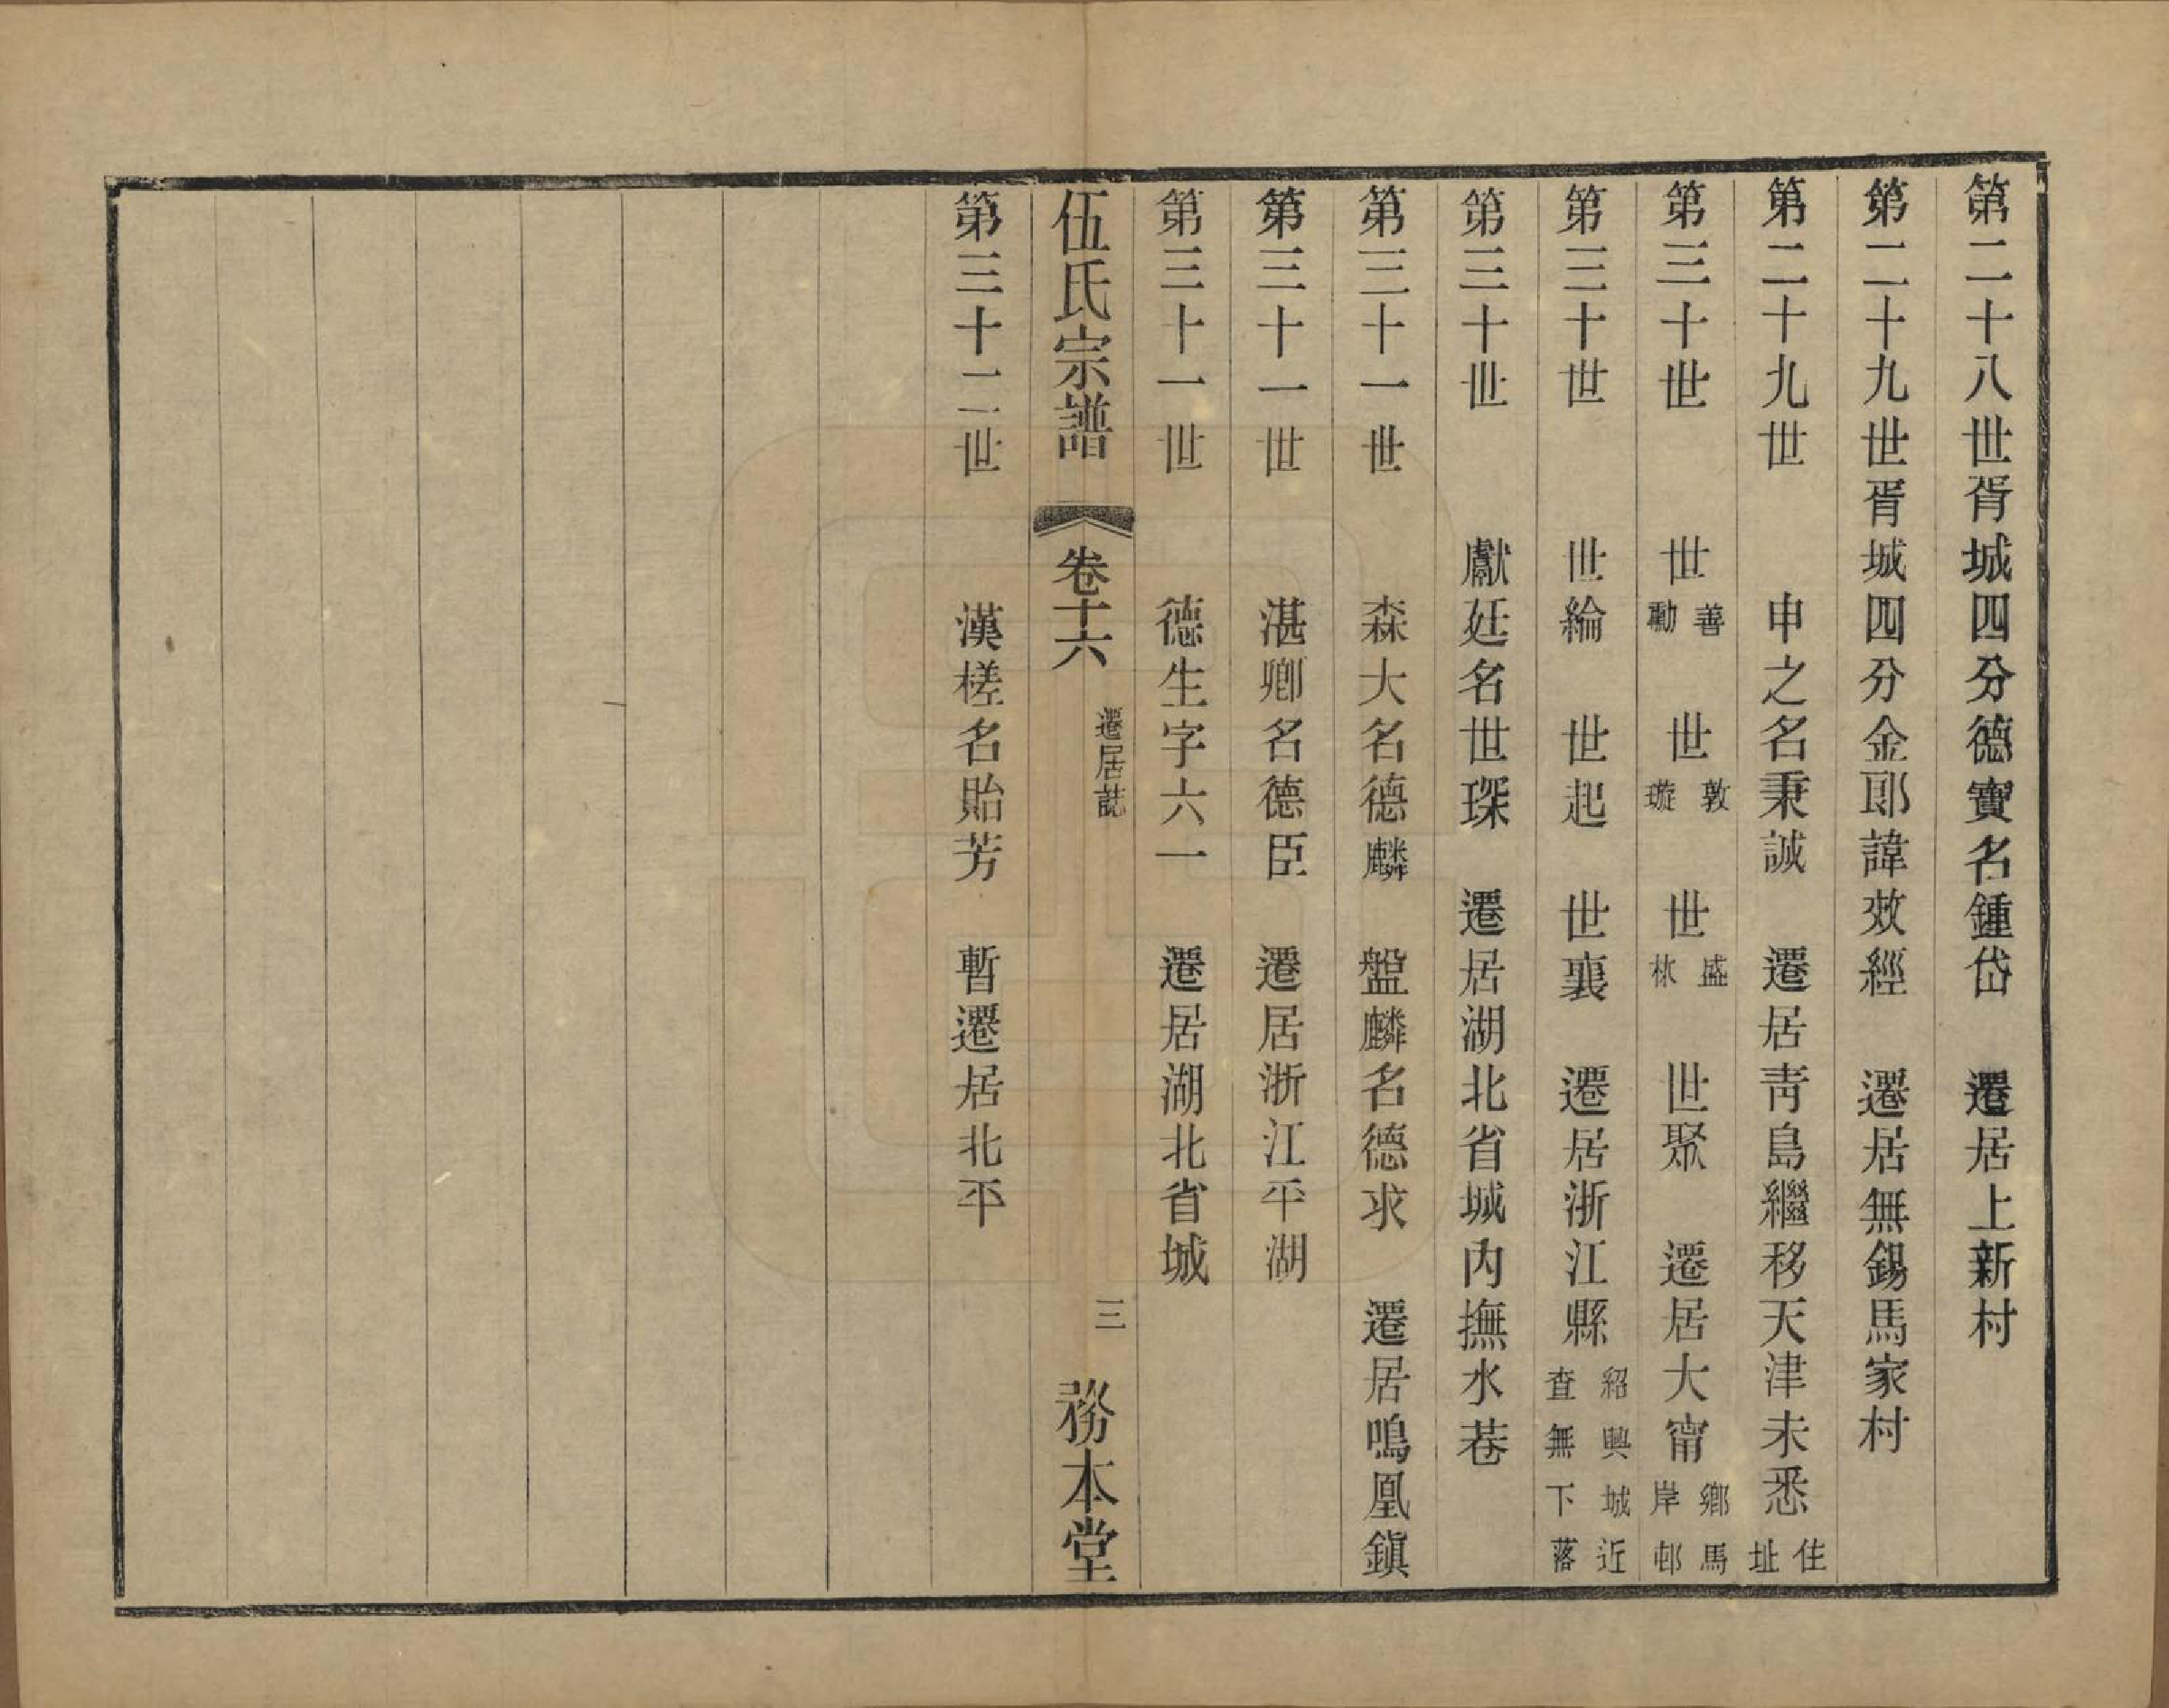 第二十八世胥城四分德寶名鍾岱　遷居上新村
第二十九世胥城四分金郎諱效經　遷居無錫馬家村
第二十九世　申之名秉誠　遷居靑島繼移天津未悉住址
第三十世　世善勳　世敦璇　世盛林　世聚　遷居大甯鄉馬岸邨
第三十世　世綸　世起　世襄　遷居浙江縣紹興城近查無下落
第三十世　獻廷名世琛　遷居湖北省城內撫水巷
第三十一世　森大名德麟　盤麟名德求　遷居鳴凰鎭
第三十一世　湛卿名德臣　遷居浙江平湖
第三十一世　德生字六一　遷居湖北省城
伍氏宗譜　卷十六　遷居誌　三　務本堂
第三十二世　漢槎名貽芳　暫遷居北平